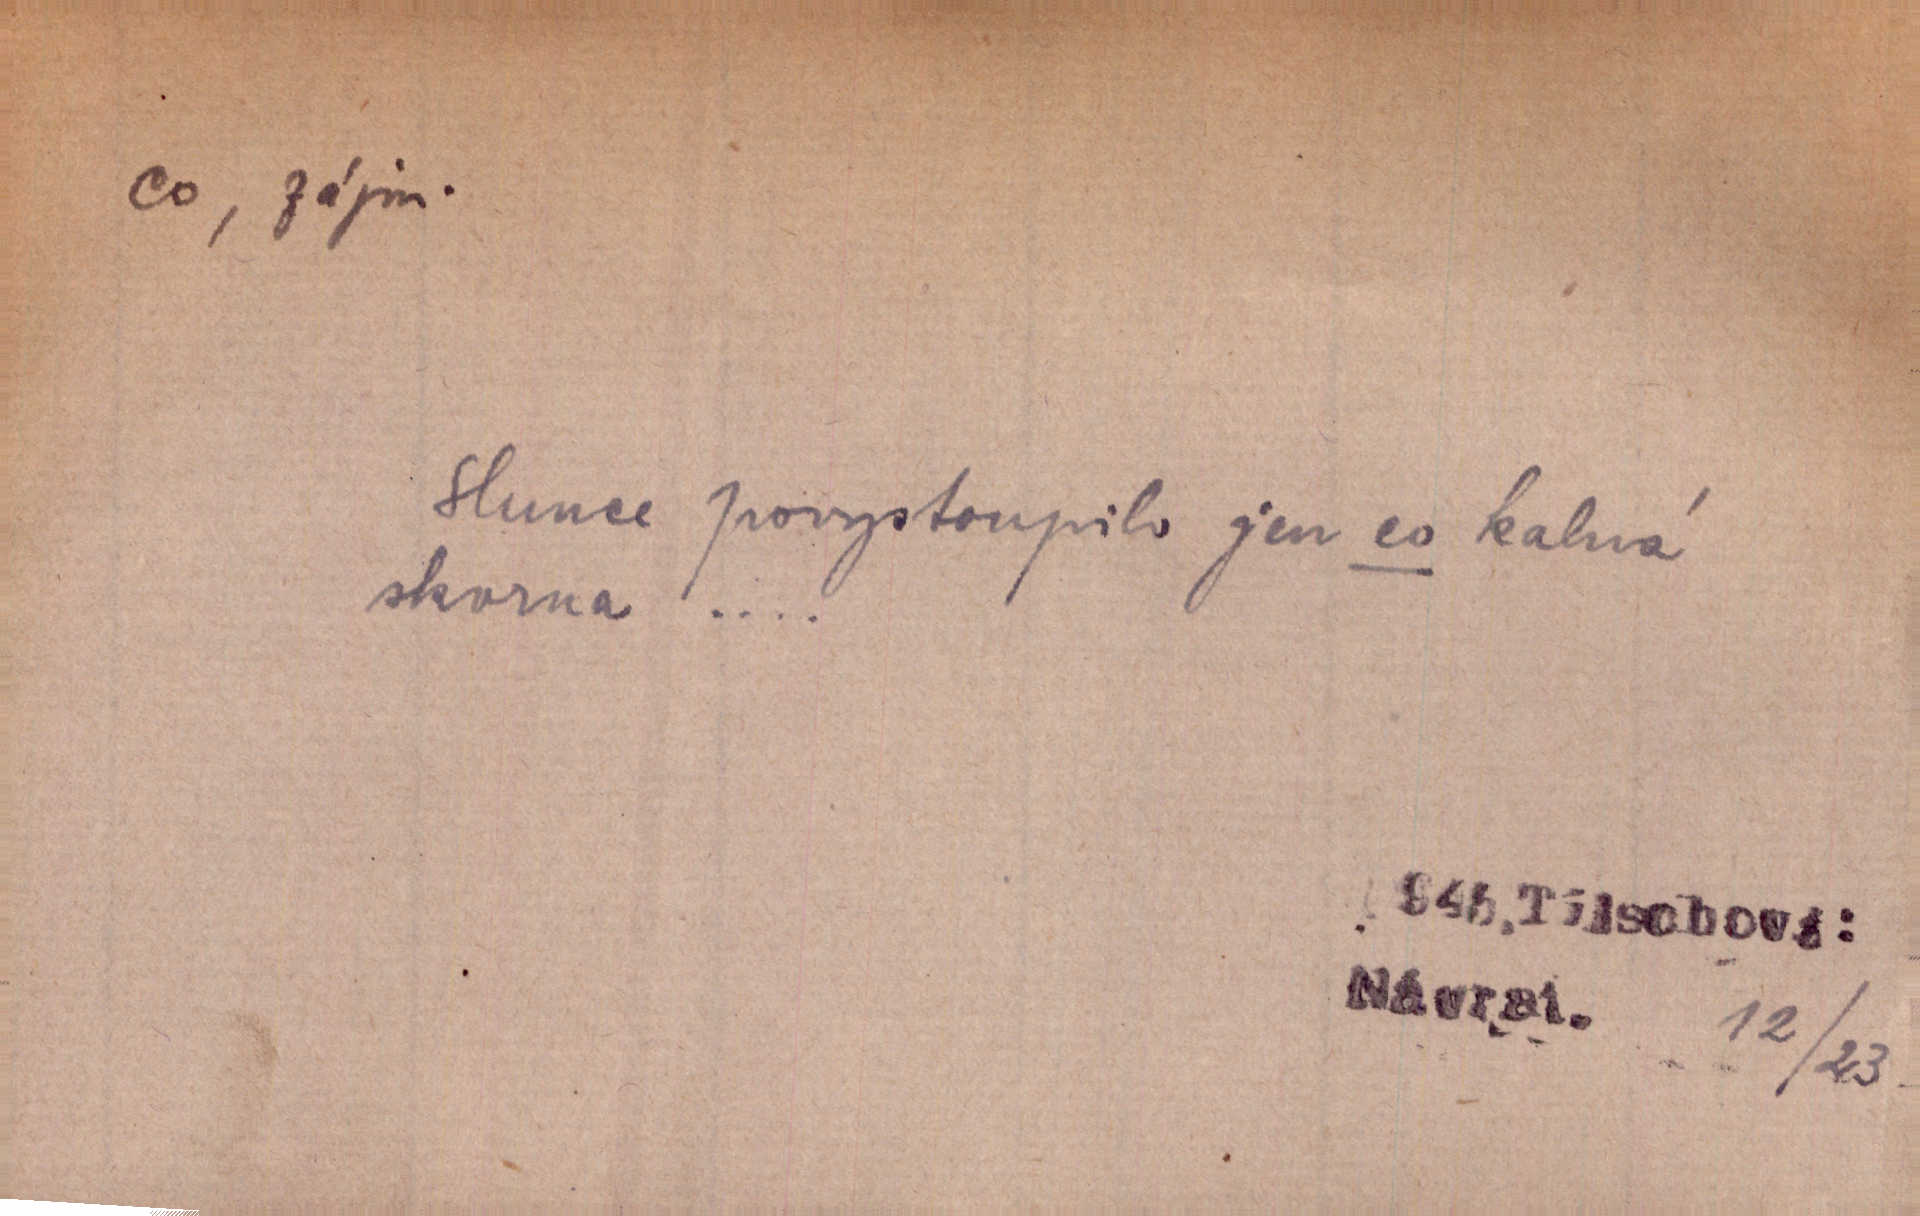 co, zájm.
Slunce povystoupilo jen co kalná
skvrna ....
Tilschová:
Návrat.
12/23